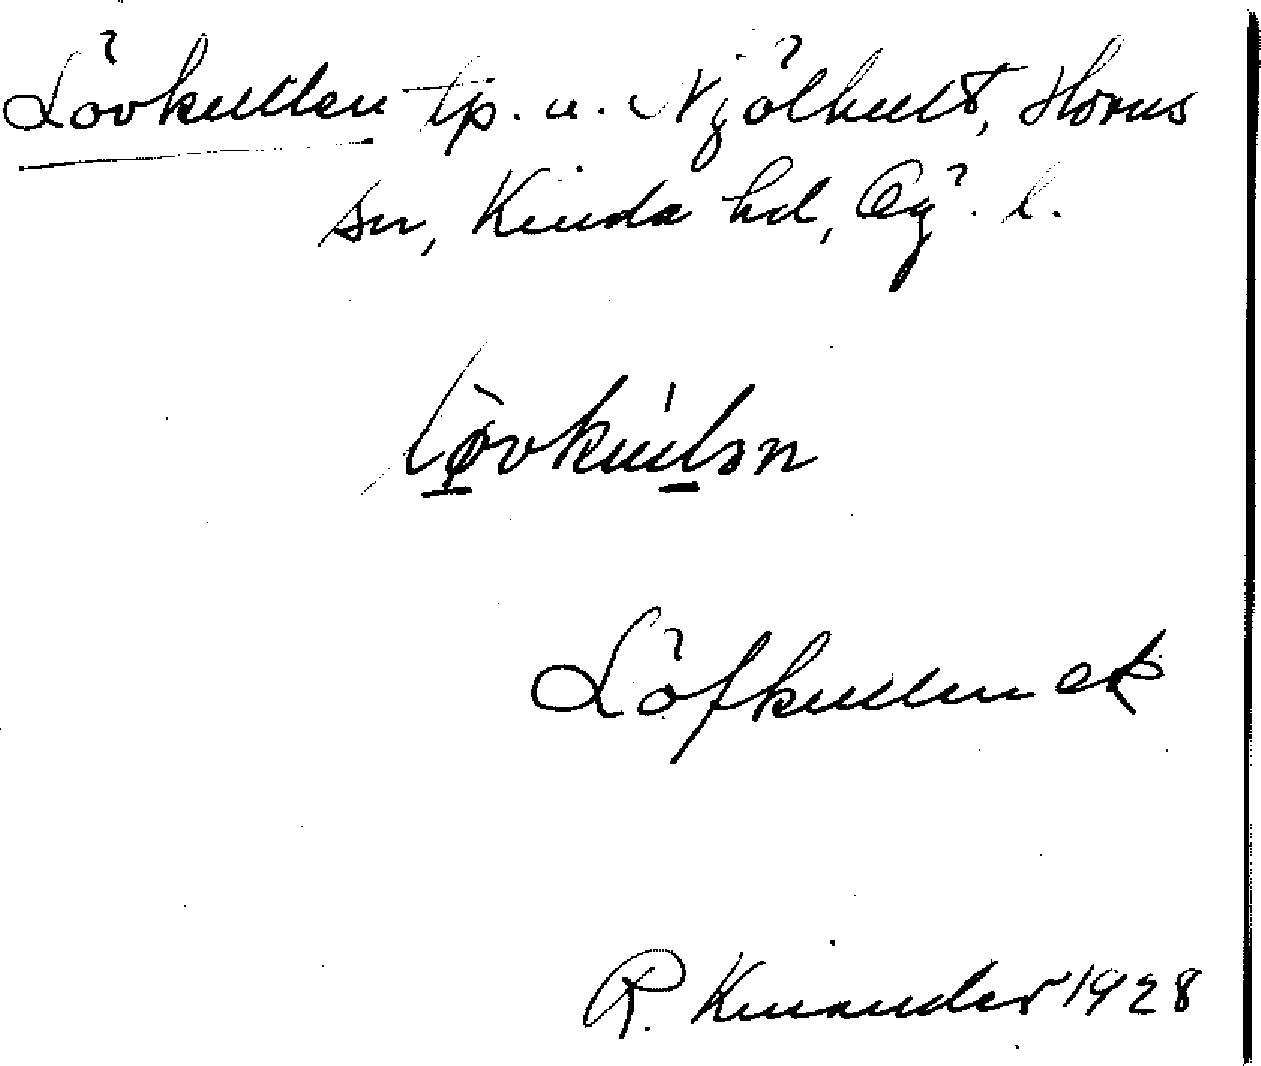 Lövkullen tp. u. Njölhult, Horns
sn, Kinda hd, Ög. l.
Löfkullen ek
R. Kinander 1928